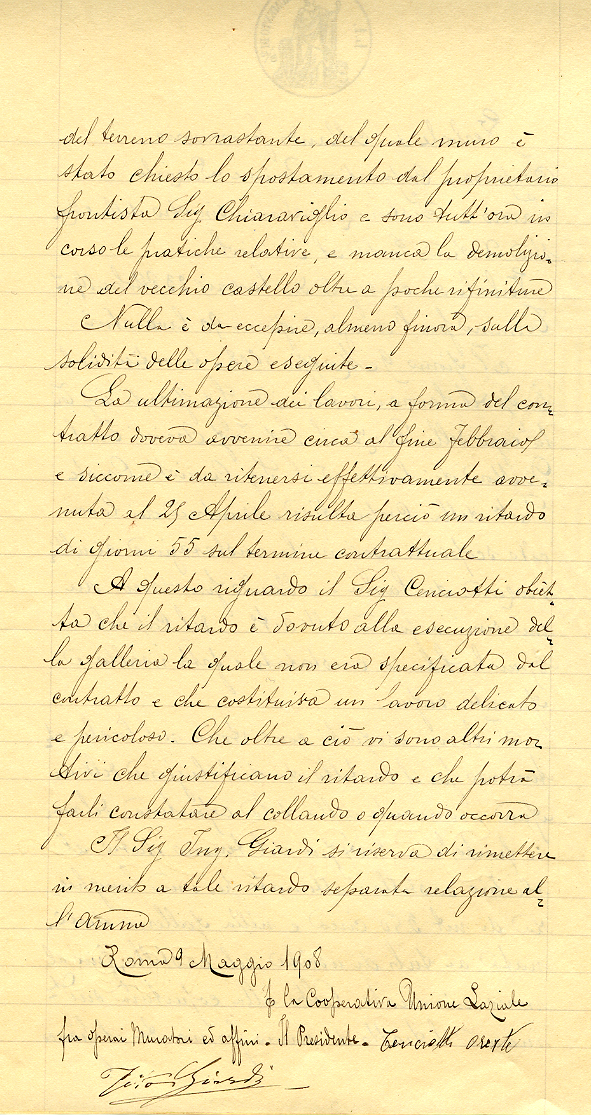 del terreno sovrastante, del quale muro è
stato chiesto lo spostamento dal proprietario
frontista Sig Chiaraviglio e sono tutt'ora in
corso le pratiche relative, e manca la demolizio-
ne del vecchio castello oltre a poche rifiniture
Nulla è da eccepire, almeno finora, sulla
solidità delle opere eseguite -
La ultimazione dei lavori, a forma del con-
tratto doveva avvenire circa al fine Febbraio
e siccome è da ritenersi effettivamente avve-
nuta al 25 Aprile risulta perciò un ritardo
di giorni 55 sul termine contrattuale
A questo riguardo il Sig Cenciotti obiet-
ta che il ritardo è dovuto alla esecuzione del-
la galleria la quale non era specificata dal
contratto e che costituiva un lavoro delicato
e pericoloso. Che oltre a ciò vi sono altri mo-
tivi che giustificano il ritardo e che potrà
farli constatare al collaudo o quando occorra
Il Sig Ing. Giardi si riserva di rimettere
in merito a tale ritardo separata relazione al-
l'Amm
Roma 9 Maggio 1908
la Cooperativa Unione Laziale
fra operai Muratori ed affini - Il Presidente - Cenciotti Oreste
Giardi